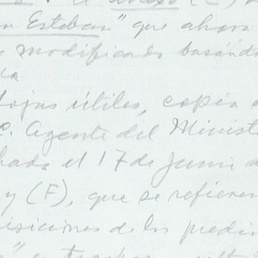 n Esteban" que ahora
modificado basánd
da
ojas útiles, copia d
o. Agente del Minist
hada el 17 de Juni
y (F), que se refieren
isiciones de los predi